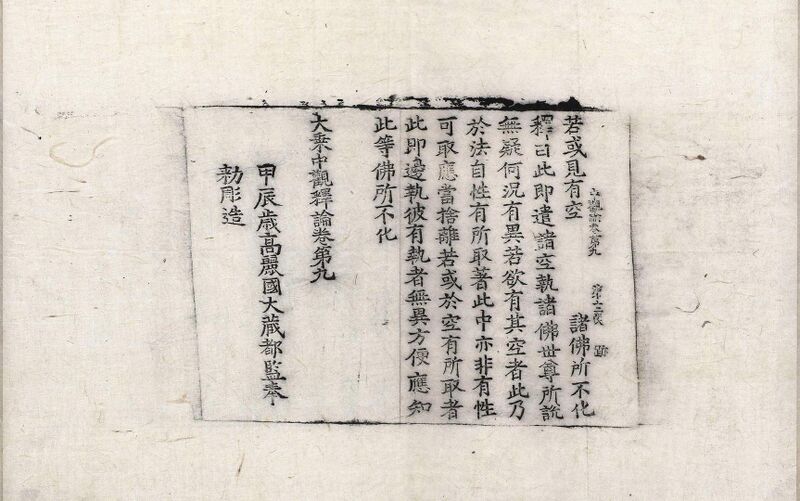 觀論卷第九 跡
若或見有空 諸佛所不化
釋曰此即遣諸空執諸佛世尊所說
無疑何況有異若欲有其空者此乃
於法自性有所取著此中亦非有性
可取應當捨離若或於空有所取者
此即邊執彼有執者無異方便應知
此等佛所不化
大乘中觀釋論卷第九
甲辰歲高麗國大藏都監奉
勅彫造